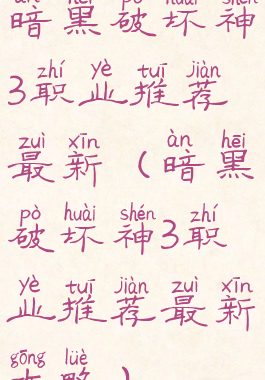 àn hēi pò huài shén
暗黑破坏神
zhí yè tuī jiàn
3职业推荐
zuì xīn àn hēi
最新(暗黑
pò huài shén zhí
破坏神3职
yè tuī jiàn zuì xīn
业推荐最新
gōng lüè
攻略)